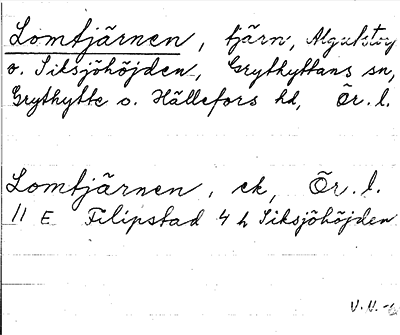 Lomtjärnen, tjärn, Algutstorp
o. Siksjöhöjden, Grythyttans sn,
Grythytte o. Hällefors hd, Ör. l.
Lomtjärnen, ek, Ör. l.
11 E Filipstad 4 h Siksjöhöjden